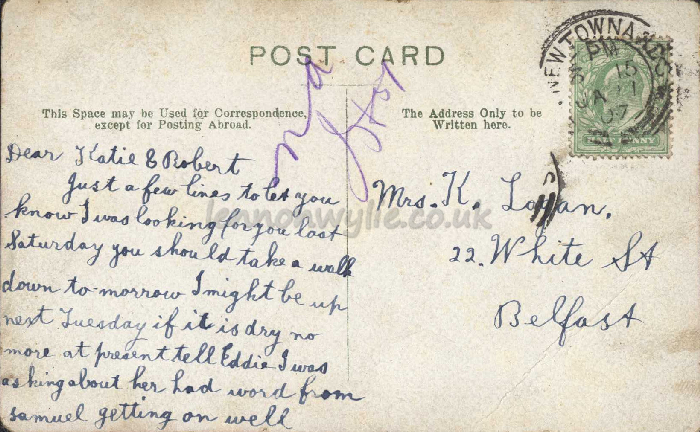 POST CARD
This Space may be Used for Correspondence,
except for Posting Abroad.
The Address Only to be
Written here.
Dear Katie & Robert
Just a few lines to let you
know I was looking for you last
Saturday you should take a walk
down to-morrow I might be up
next Tuesday if it is dry no
more at present tell Eddie I was
asking about her had word from
samuel getting on well
Mrs. K. Logan,
22. White St
Belfast
NEWTOWNA
PM
15
07
PENNY
lennonwylie.co.uk